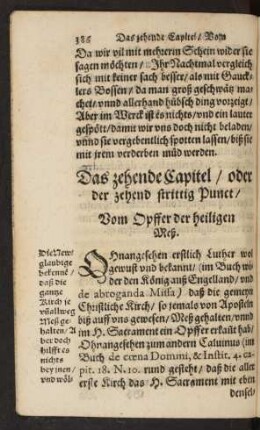 386 Das zehende Capitel / Vom
Da wir vil mit mehrerm Schein wider sie
sagen möchten / Ihr Nachtmal vergleich
sich mit keiner sach besser / als mit Gauck-
lers Bossen / da man groß geschwätz ma-
chet / vnnd allerhand hübsch ding vorzeigt /
Aber im Werck ist es nichts / vnd ein lauter
gespött / damit wir vns doch nicht beladen /
vnnd sie vergebentlich spotten lassen / biß sie
mit jrem verderben müd werden.
Das zehende Capitel / oder
der zehend strittig Punct /
Vom Opffer der heiligen
Meß.
Ohnangesehen erstlich Luther wol
gewust vnd bekannt / (im Buch wi-
der den König auß Engelland / vnd
de abroganda Missa) daß die gemeyn
Christliche Kirch / so jemals von Aposteln
biß auff vns gewesen / Meß gehalten / vnnd
im H. Sacrament ein Opffer erkañt hab /
Ohnangesehen zum andern Caluinus (im
Buch de cœna Dommi, & Instit. 4. ca-
pit. 18. N. 10. rund gesteht / daß die aller
erste Kirch das H. Sacrament mit eben
densel-
Die New-
glaubige
bekenne /
daß die
gantze
Kirch je
vñ allweg
Meß ge-
halten / A
ber doch
hilfft es
nichts
bey jnen /
vnd wöl-